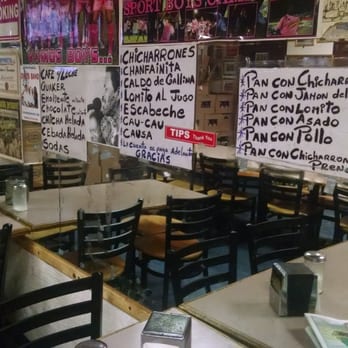 OKING
SPORT BOYS
CAFE Y LECHE
QUAKER
EMOLIENTE
CHOCOLATE
CHICHA HELADA
CEBADA HELADA
SODAS
CHICHARRONES
CHANFAINITA
CALDO de GALLINA
LOMITO AL JUGO
ESCABECHE
CAU-CAU
CAUSA
TIPS Thank You
GRACIAS
PAN CON CHICHARR
PAN CON JAMON del
PAN CON LOMITO
PAN CON ASADO
PAN CON POLLO
PAN CON CHICHARRON
PRENS